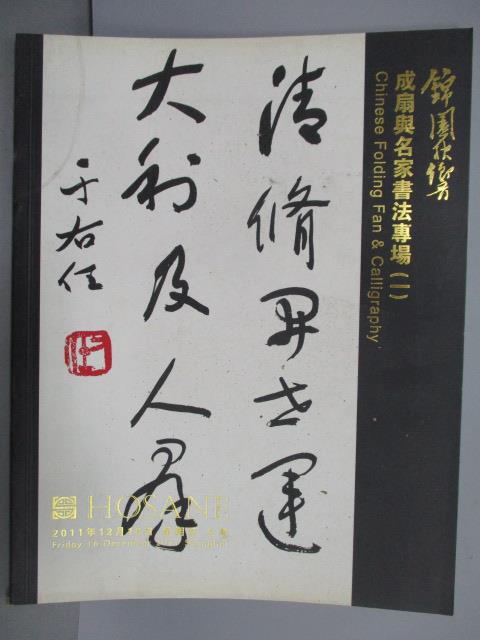 錦園伙響
成扇與名家書法專場(一)
Chinese Folding Fan & Calligraphy
清脩昇世運
大利及人羣
于右任
HOSANE
2011年12月16日 星期五 上海
Friday 16 December 2011 Shanghai